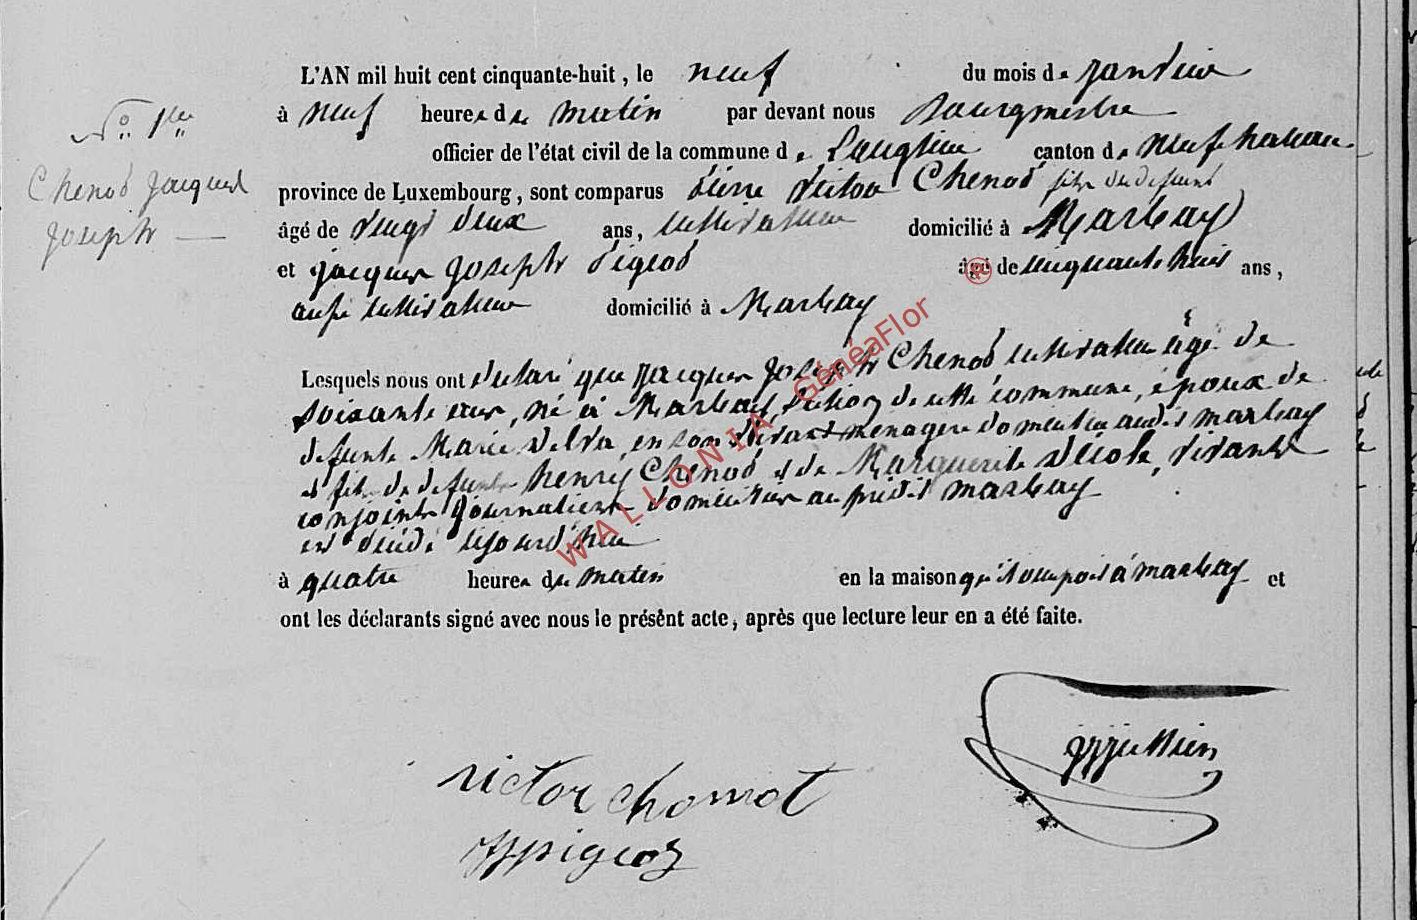 L'AN mil huit cent cinquante-huit, le neuf du mois de janvier
N° 1er
à neuf heures du matin par devant nous Bourgmestre
officier de l'état civil de la commune de Longlier canton de neufchateau
Chenot Jacques
province de Luxembourg, sont comparus Victor Chenot fils du defunt
Joseph
âgé de vingt deux ans, cultivateur domicilié à Marbay
et jacques joseph Pigeot âgé de cinquante huit ans,
aussi cultivateur domicilié à Marbay
Lesquels nous ont déclaré que jacques joseph Chenot cultivateur âgé de
soixante ans, né à Marbay, section de cette commune, époux de
defunte Marie en son vivant menagere domiciliée audit marbay
et fils de defunts henry Chenot et de Marguerite vivants
conjoints journaliers domiciliés au prédit marbay
est décédé
à quatre heures du matin en la maison qu'il occupait à marbay et
ont les déclarants signé avec nous le présent acte, après que lecture leur en a été faite.
victor chomot
JJpigeot
WALLONIA GénéaFlor @